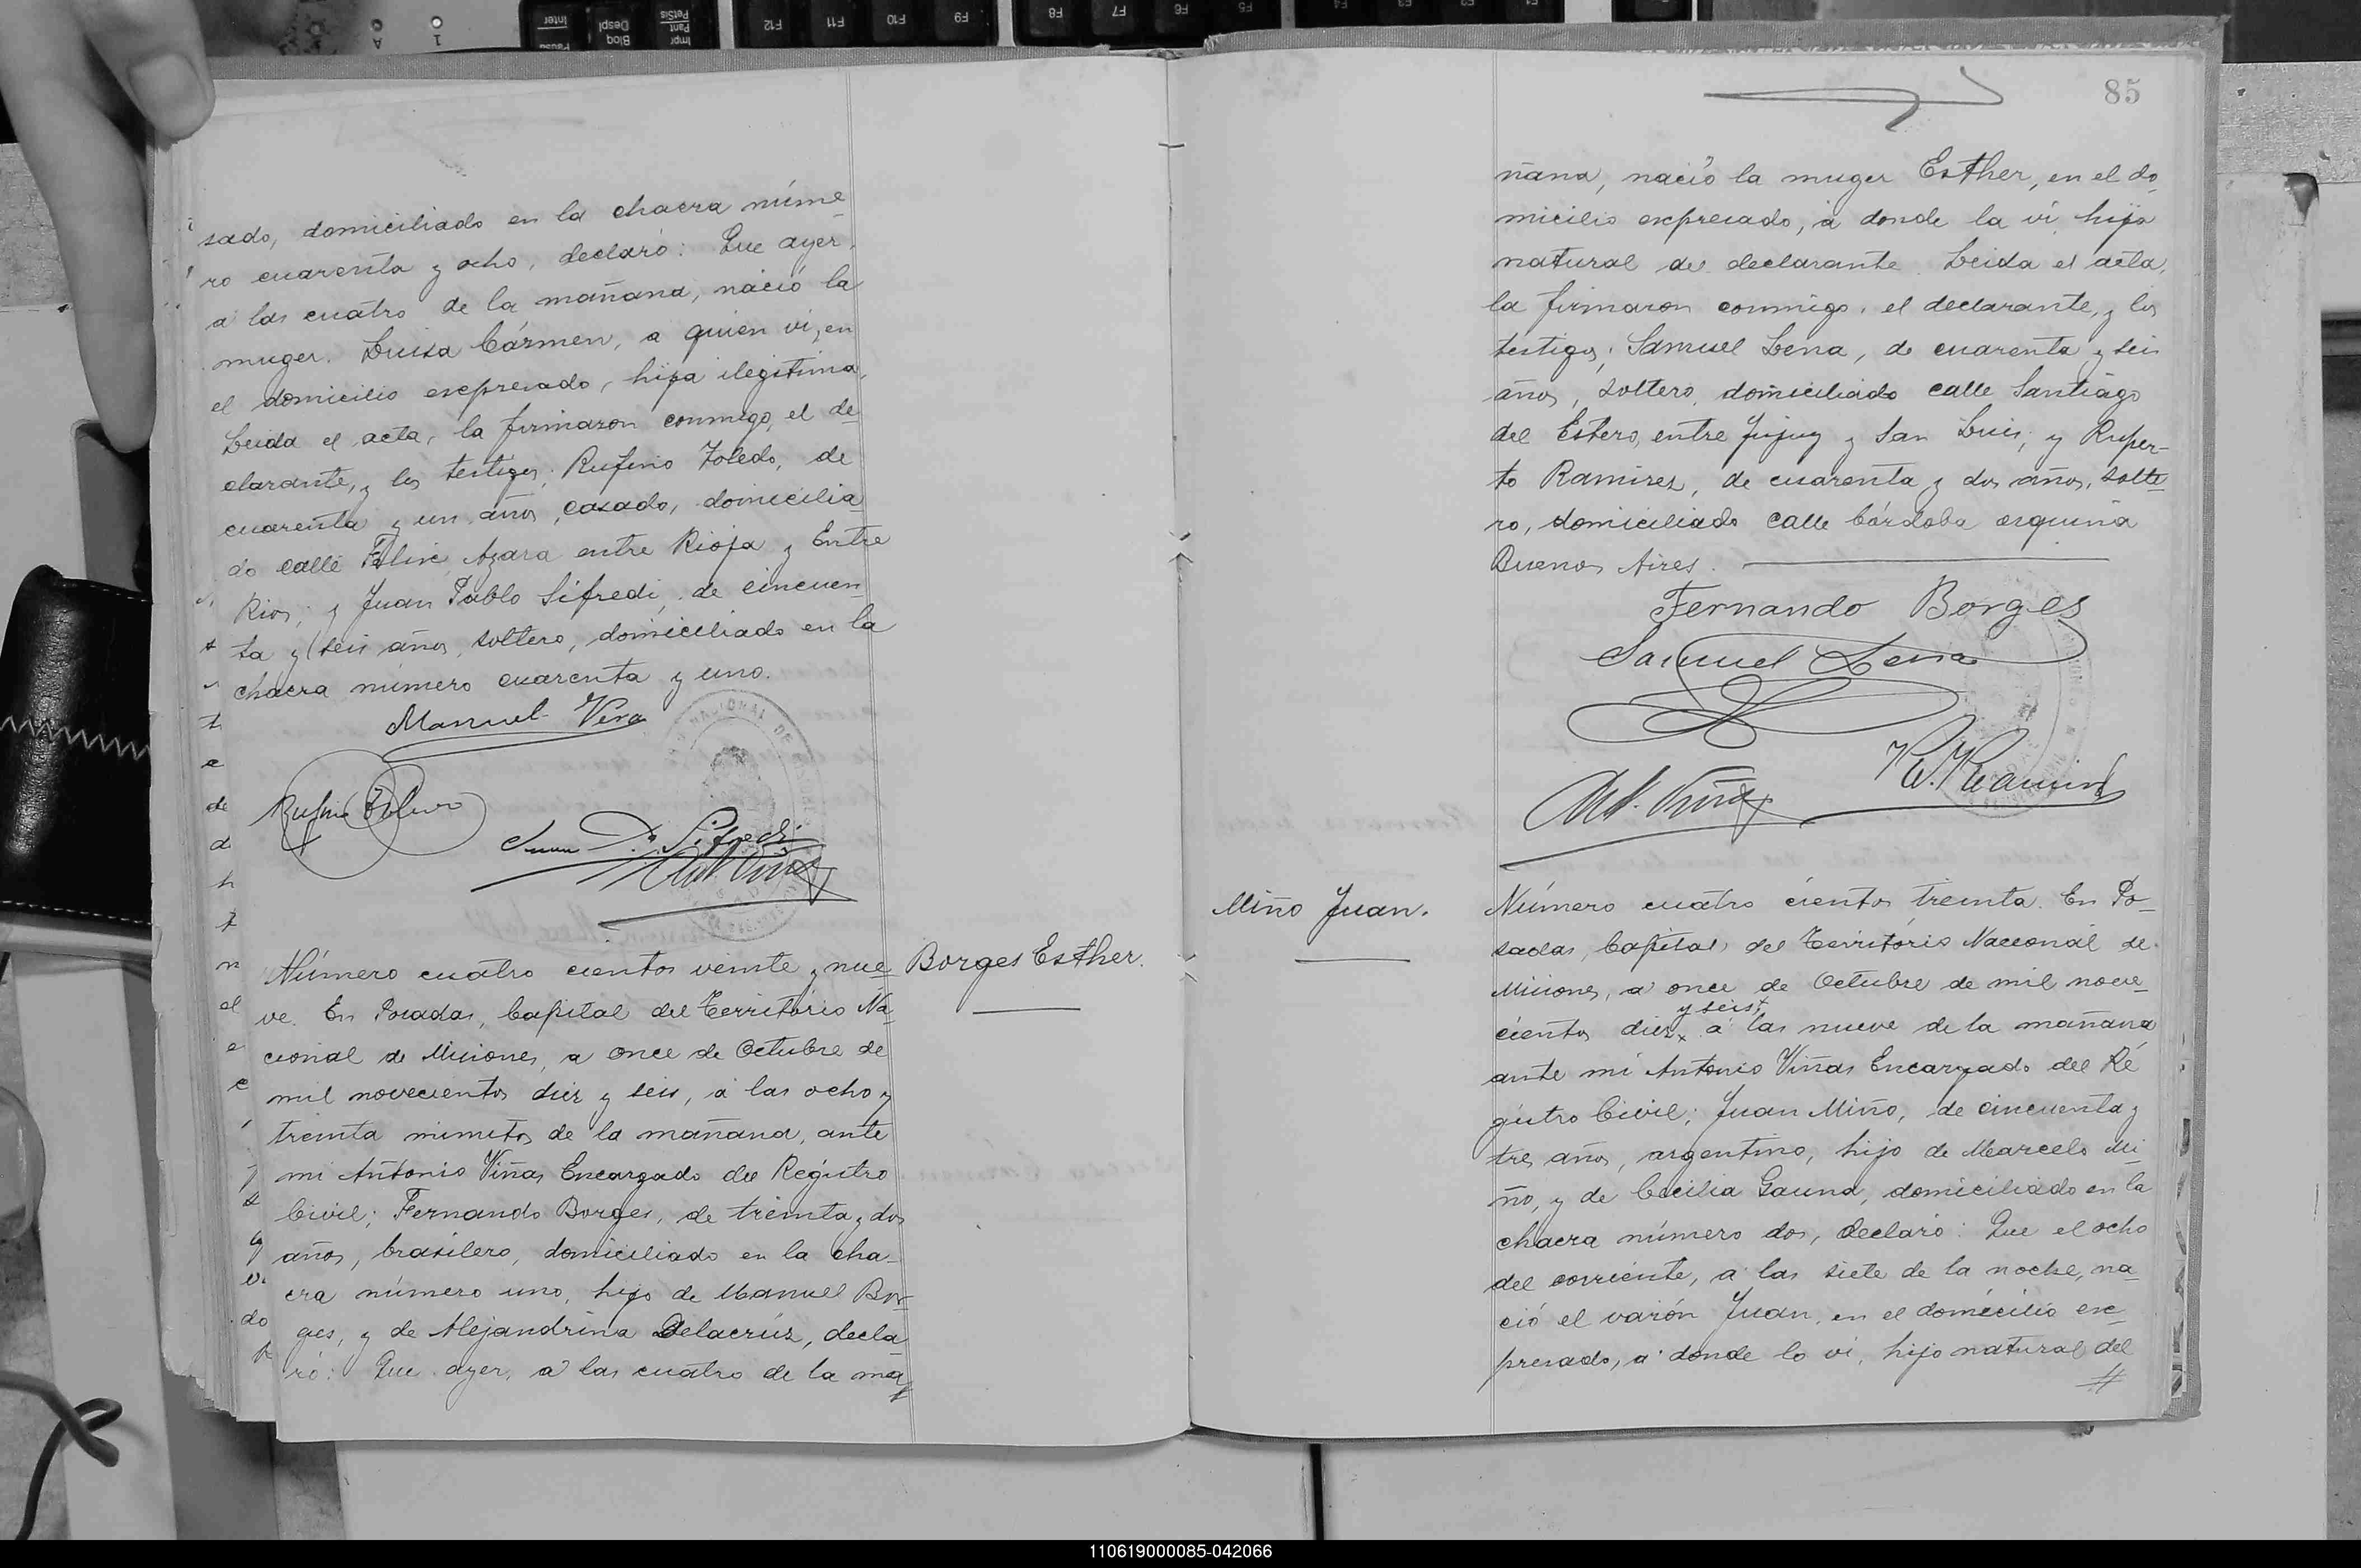 sado, domiciliado en la chacra núme
ro cuarenta y ocho, declaró: Que ayer,
a las cuatro de la mañana, nació la
muger. Luisa Cármen, a quien vi, en
el domicilio expresado, hija ilegitima,
Leida el acta, la firmaron conmigo, el de
clarante, y los testigos; Rufino Toledo, de
cuarenta y un años, casado, domicilia
do calle Felix Azara entre Rioja y Entre
Rios; y Juan Pablo Sifredi, de cincuen
ta y seis años, soltero, domiciliado en la
chacra número cuarenta y uno.
Manuel Vera
Rufino Toledo
Juan P. Sifredi
Ant. Viñas
Número cuatro cientos veinte y nue
Borges Esther.
ve. En Posadas, Capital del Territorio Na
cional de Misiones, a once de Octubre de
mil novecientos diez y seis, a las ocho y
treinta minutos de la mañana, ante
mi Antonio Viñas Encargado del Registro
Civil; Fernando Borges, de treinta y dos
años, brasilero, domiciliado en la cha-
cra número uno, hijo de Manuel Bor-
ges, y de Alejandrina Delacrúz, decla
ró: Que ayer, a las cuatro de la ma
85
ñana, nació la muger Esther, en el do
micilio expresado, a donde la vi, hija
natural del declarante. Leida el acta,
la firmaron conmigo, el declarante, y los
testigos; Samuel Lena, de cuarenta y seis
años, soltero, domiciliado calle Santiago
del Estero, entre Jujuy y San Luis; y Ruper-
to Ramirez, de cuarenta y dos años, solte
ro, domiciliado calle Córdoba esquina
Buenos Aires.
Fernando Borges
Samuel Lena
R. Ramirez
Ant. Viñas
Miño Juan.
Número cuatro cientos treinta. En Po-
sadas, Capital del Territorio Nacional de
Misiones, a once de Octubre de mil nove-
y seis
cientos diez a las nueve de la mañana
ante mi Antonio Viñas Encargado del Re
gistro Civil; Juan Miño, de cincuenta y
tres años, argentino, hijo de Marcelo Mi
ño, y de Cecilia Gauna, domiciliado en la
chacra número dos, declaró: Que el ocho
del corriente, a las siete de la noche, na
ció el varón Juan, en el domicilio ex-
presado, a donde lo vi, hijo natural del
Impr Pant PetSis
Bloq Despl
Pausa Inter
F12
F11
F10
F9
F8
F7
F6
F5
F4
F3
F2
F1
110619000085-042066